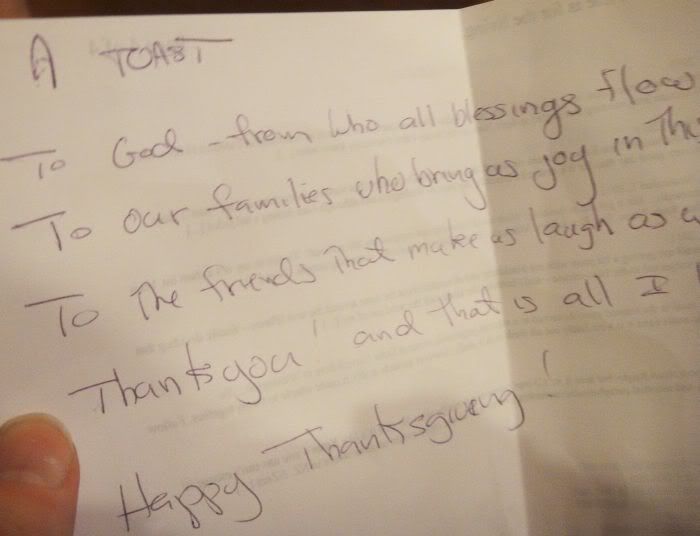 A TOAST
To God - from who all blessings flow
To our families who bring us joy in
To The friends That make us laugh as
Thank you! and that is all I
Happy Thanksgiving!